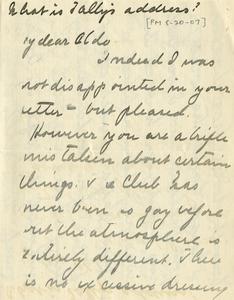 What is Tally's address?
[PM 5-20-07]
My dear Aldo
Indeed I was
not disappointed in your
letter - but pleased.
However you are a trifle
mistaken about certain
things. The Club has
never been so gay before
but the atmosphere is
entirely different. There
is no excessive dressing